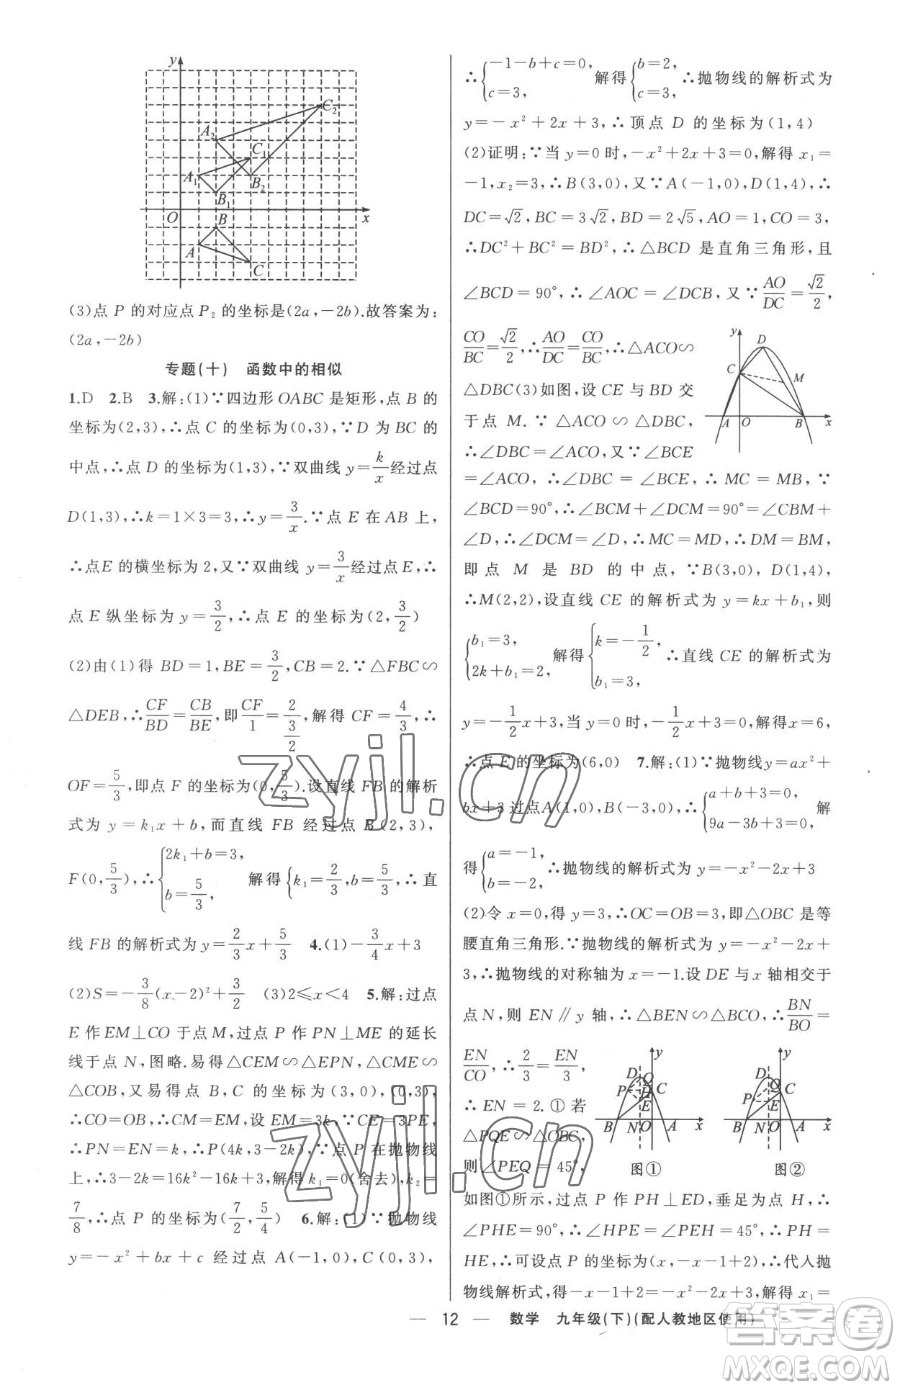 y
C₂
A₂
C₁
A₁
B₂
B₁
O
B
x
A
C
(3)点 P 的对应点 P₂ 的坐标是(2a,-2b).故答案为:
(2a,-2b)
专题(十) 函数中的相似
1.D 2.B 3.解:(1)∵四边形 OABC 是矩形,点 B 的
坐标为(2,3),∴点 C 的坐标为(0,3),∵D 为 BC 的
中点,∴点 D 的坐标为(1,3),∵双曲线 y=k/x 经过点
D(1,3),∴k=1×3=3,∴y=3/x.∵点 E 在 AB 上,
∴点E 的横坐标为 2,又∵双曲线 y=3/x 经过点 E,∴
点 E 纵坐标为 y=3/2,∴点 E 的坐标为(2,3/2)
(2)由(1)得 BD=1,BE=3/2,CB=2.∵△FBC∽
△DEB,∴CF/BD=CB/BE,即CF/1=2/(3/2),解得 CF=4/3,∴
OF=5/3,即点 F 的坐标为(0,5/3).设直线 FB 的解析
式为 y=k₁x+b,而直线 FB 经过点 B(2,3),
F(0,5/3),∴{2k₁+b=3, b=5/3, 解得{k₁=2/3,b=5/3,∴直
线 FB 的解析式为 y=2/3x+5/3 4.(1)-3/4x+3
(2)S=-3/8(x-2)²+3/2 (3)2≤x<4 5.解:过点
E 作 EM⊥CO 于点 M,过点 P 作 PN⊥ME 的延长
线于点 N,图略.易得△CEM∽△EPN,△CME∽
△COB,又易得点 B,C 的坐标为(3,0),(0,3),
∴CO=OB,∴CM=EM,设 EM=3k,∵CE=3PE,
∴PN=EN=k,∴P(4k,3-2k),∵点 P 在抛物线
上,∴3-2k=16k-16k²+3,解得 k₁=0(舍去),k₂=
7/8,∴点 P 的坐标为(7/2,5/4) 6.解:(1)∵抛物线
y=-x²+bx+c 经过点 A(-1,0),C(0,3),
∴{-1-b+c=0, c=3, 解得{b=2, c=3, ∴抛物线的解析式为
y=-x²+2x+3,∴顶点 D 的坐标为(1,4)
(2)证明:∵当 y=0 时,-x²+2x+3=0,解得 x₁=
-1,x₂=3,∴B(3,0),又∵A(-1,0),D(1,4),∴
DC=√2,BC=3√2,BD=2√5,AO=1,CO=3,
∴DC²+BC²=BD²,∴△BCD 是直角三角形,且
∠BCD=90°,∴∠AOC=∠DCB,又∵AO/DC=√2/2,
CO/BC=√2/2,∴AO/DC=CO/BC,∴△ACO∽
△DBC(3)如图,设 CE 与 BD 交
于点 M.∵△ACO∽△DBC,
∴∠DBC=∠ACO,又∵∠BCE
=∠ACO,∴∠DBC=∠BCE,∴MC=MB,∵
∠BCD=90°,∴∠BCM+∠DCM=90°=∠CBM+
∠D,∴∠DCM=∠D,∴DM=CM,∴DM=BM,
即点 M 是 BD 的中点,∵B(3,0),D(1,4),
∴M(2,2),设直线 CE 的解析式为 y=kx+b₁,则
{b₁=3, 2k+b₁=2, 解得{k=-1/2, b₁=3, ∴直线 CE 的解析式为
y=-1/2x+3,当 y=0 时,-1/2x+3=0,解得 x=6,
∴点 E 的坐标为(6,0) 7.解:(1)∵抛物线 y=ax²+
bx+3 过点A(1,0),B(-3,0),∴{a+b+3=0, 9a-3b+3=0, 解
得{a=-1, b=-2, ∴抛物线的解析式为 y=-x²-2x+3
(2)令 x=0,得 y=3,∴OC=OB=3,即△OBC 是等
腰直角三角形.∵抛物线的解析式为 y=-x²-2x+
3,∴抛物线的对称轴为 x=-1.设 DE 与 x 轴相交于
点 N,则 EN∥y 轴,∴△BEN∽△BCO,∴BN/BO=
EN/CO,∴2/3=EN/3,
∴EN=2.①若
△PQE∽△OBC,
则∠PEQ=45°,
y
D
C
M
A
O
B
x
图①
图②
如图①所示,过点 P 作 PH⊥ED,垂足为点 H,∴
∠PHE=90°,∴∠HPE=∠PEH=45°,∴PH=
HE,∴可设点 P 的坐标为(x,-x-1+2),∴代人抛
物线解析式,得-x-1+2=-x²-2x+3,解得 x₁=
— 12 — 数学 九年级(下)(配人教地区使用)
zyjl.cn
zyjl.cn
答案圈
MXQE.COM